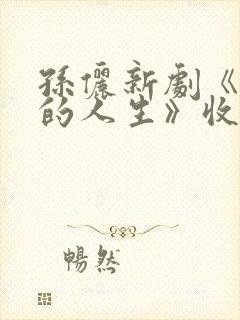 孫儷新劇《
的人生》收
暢然